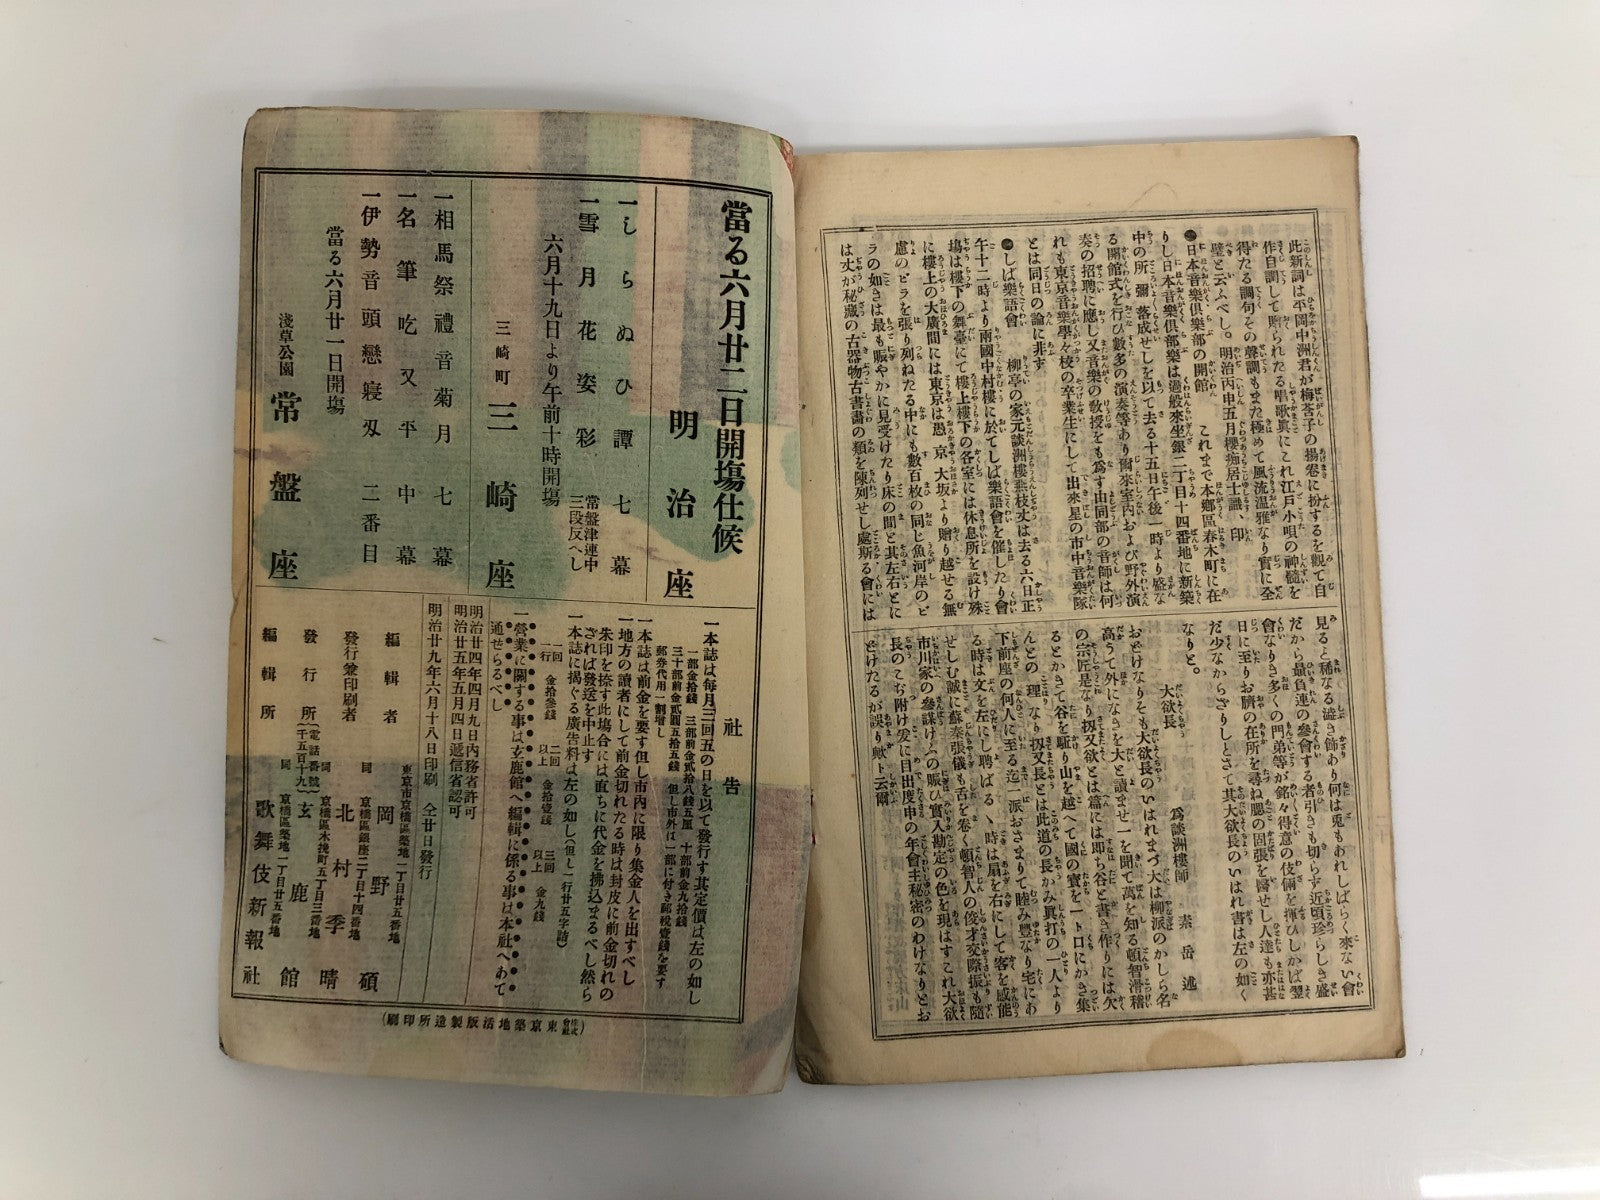 此新詞は平岡中洲君が梅莟子の揚卷に扮するを觀て自
作自調して贈られたる唱歌眞にこれ江戸小唄の神髓を
得たる調句その聲調もまた極めて風流温雅なり實に全
璧と云ふべし。明治丙申五月櫻痴居士識、印
●日本音樂倶樂部の開館 これまで本鄕區春木町に在
りし日本音樂倶樂部は過般來坐銀二丁目十四番地に新築
中の所彌落成せしを以て去る十五日午後一時より盛な
る開館式を行ひ數多の演奏等あり爾來室內および野外演
奏の招聘に應し又音樂の敎授をも爲す由同部の音師は何
れも東京音樂學々校の卒業生にして出來星の市中音樂隊
とは同日の論に非す
●しば樂語會 柳亭の家元談洲樓燕枝丈は去る六日正
午十二時より兩國中村樓に於てしば樂語會を催したり會
塲は樓下の舞臺にて樓上樓下の各室には休息所を設け殊
に樓上の大廣間には東京は愚京大坂より贈り越せる無
慮のビラを張り列ねたる中にも數百枚の同じ魚河岸のビ
ラの如きは最も賑やかに見受けたり床の間と其左右とに
は丈が秘藏の古器物古書畵の類を陳列せし處斯る會には
見ると稀なる謐き飾あり何は兎もあれしばらく來ない會
だから最負連の參會する者引きも切らず近頃珍らしき盛
會なりき多くの門弟等が銘々得意の伎倆を揮ひしかば翌
日に至りお臍の在所を尋ね腮の固張を醫せし人達も亦甚
だ少なからざりしとさて其大欲長のいはれ書は左の如く
なりと。
大欲長 爲談洲樓師 素岳述
おどけなりそも大欲長のいはれまづ大は柳派のかしら名
高うて外になきを大と讀ませ一を聞て萬を知る頓智滑稽
の宗匠是なり扨又欲とは篇には即ち谷と書き作りには欠
るとかきて谷を駈り山を越へて國の寳を一ト口にかき集
んとの理なり扨又長とは此道の長かみ眞打の一人より
下前座の何人に至る迄一派おさまりて睦み豐なり宅にあ
る時は文を左にし聘ばるゝ時は扇を右にして客を感能
せしむ誠に蘇秦張儀も舌を卷く頓智人の俊才交際振も隨
市川家の參謀けふの賑ひ實入勘定の色を現はすこれ大欲
長のこぢ附け发に目出度申の年會主秘密のわけなりとお
どけたるが誤り歟ト云爾
當る六月廿二日開塲仕候
明治座
一しらぬひ譚 七幕
一雪月花姿彩 常盤津連中
三段反へし
六月十九日より午前十時開塲
三崎町 三崎座
一相馬祭禮音菊月 七幕
一名筆吃又平 中幕
一伊勢音頭戀寢刄 二番目
當る六月廿一日開塲
淺草公園 常盤座
社告
一本誌は每月三回五の日を以て發行す其定價は左の如し
一部金拾錢 三部前金貳拾八錢五厘 十部前金九拾錢
三十部前金貳圓五拾五錢 但し市外は一部に付き郵稅壹錢を要す
郵劵代用一割增し
一本誌は前金を要す但し市內に限り集金人を出すべし
一地方の讀者にして前金切れたる時は封皮に前金切れの
朱印を捺す此塲合には直ちに代金を拂込まるべし然ら
ざれば發送を中止す
一本誌に揭ぐる廣告料は左の如し(但し一行廿五字詰)
一回 一行 金拾參錢 二回以上 金拾壹錢 三回以上 金九錢
一營業に關する事は玄鹿館へ編輯に係る事は本社へあて
通せらるべし
明治廿四年四月九日內務省許可
明治廿五年五月四日遞信省認可
明治廿九年六月十八日印刷 仝廿日發行
東京市京橋區築地一丁目廿五番地
編輯者 岡野碩
同 京橋區銀座二丁目十四番地
發行兼印刷者 北村季晴
同 京橋區木挽町五丁目三番地
發行所 (電話番號千五百十九) 玄鹿館
同 京橋區築地一丁目廿五番地
編輯所 歌舞伎新報社
(株式會社東京築地活版製造所印刷)